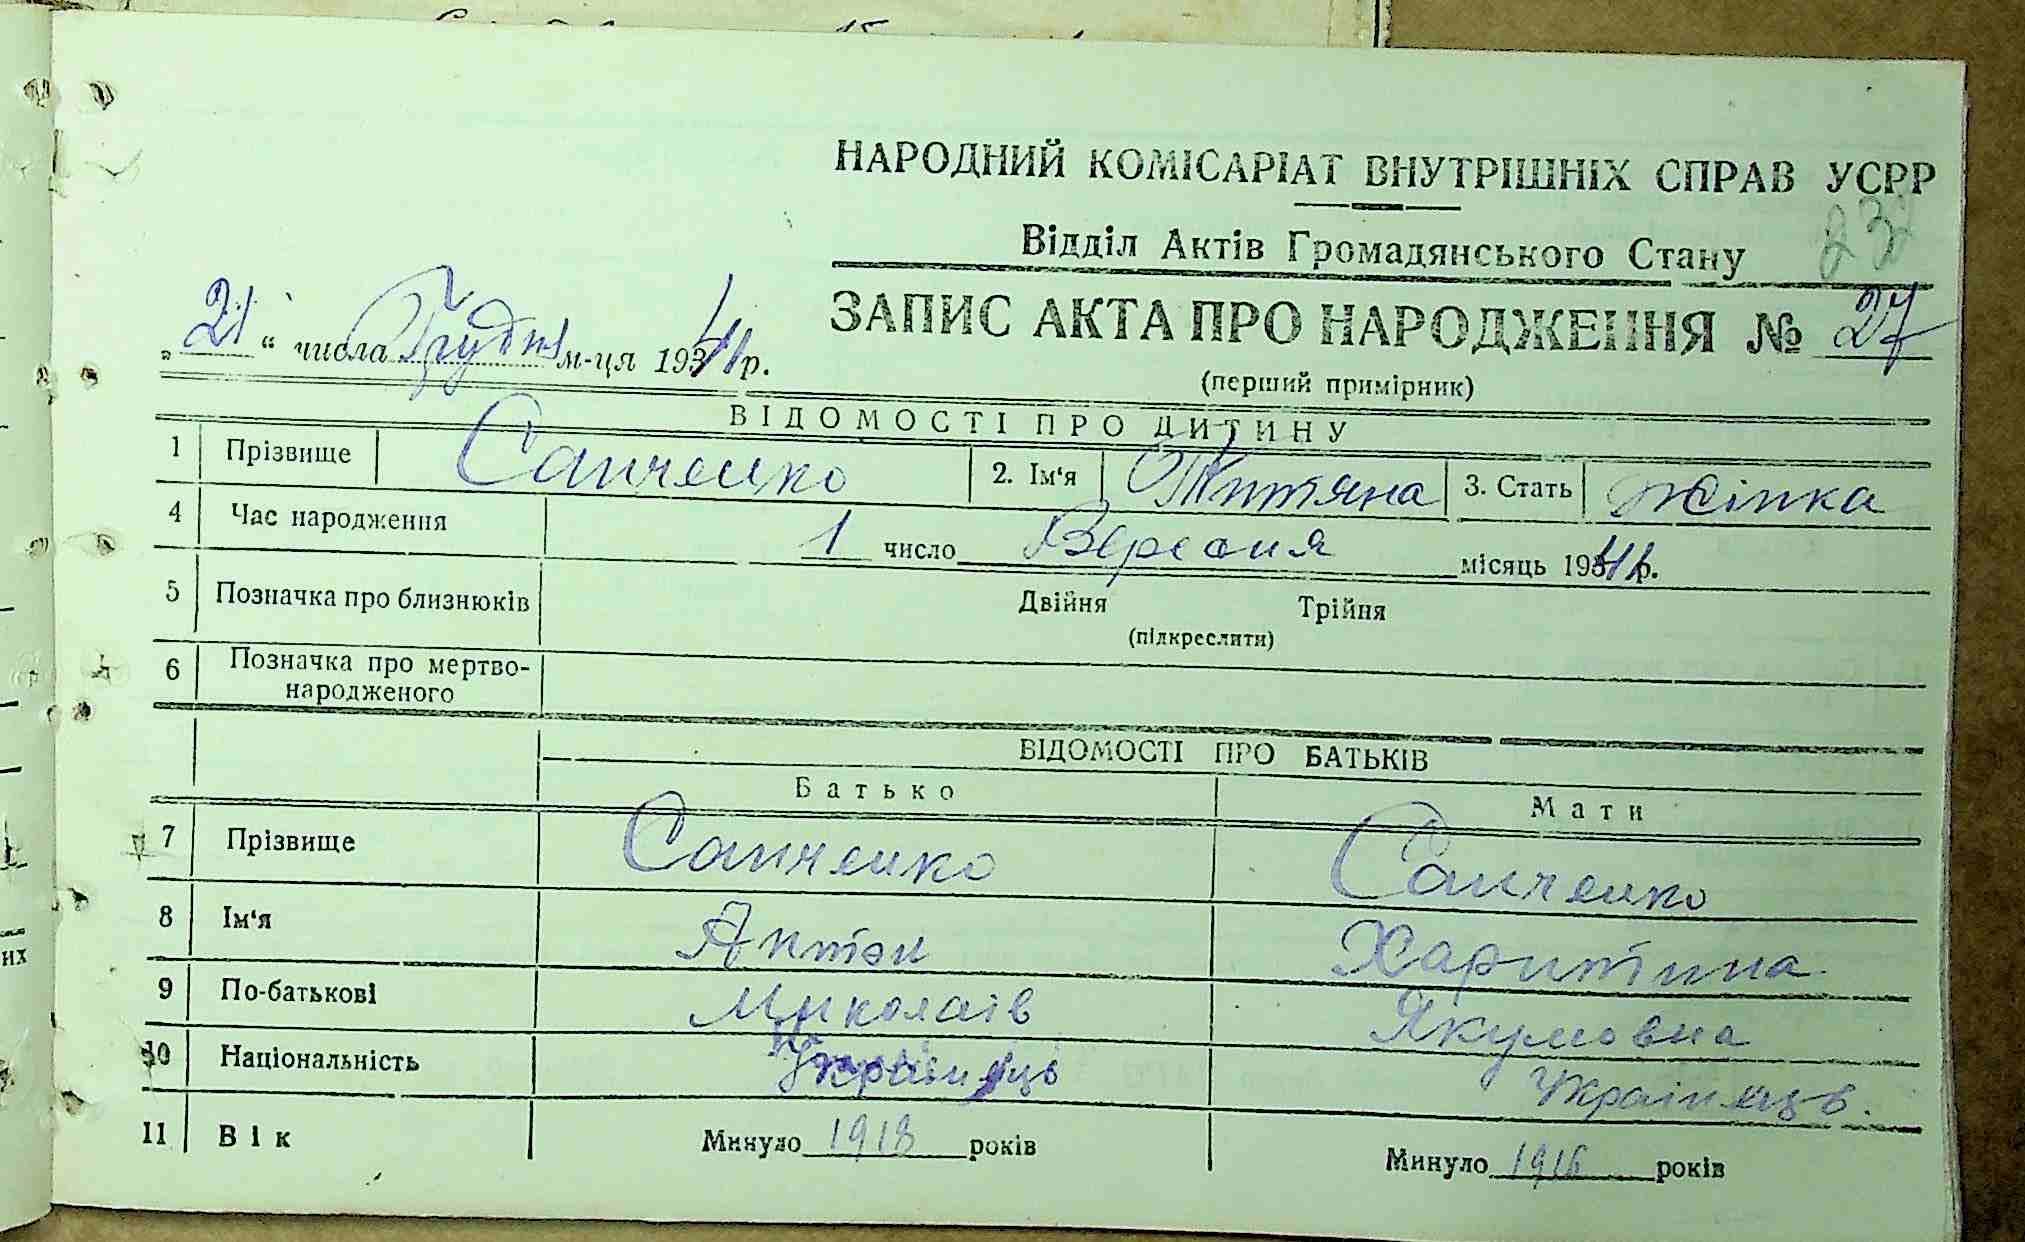 НАРОДНИЙ КОМІСАРІАТ ВНУТРІШНІХ СПРАВ УСРР
232
Відділ Актів Громадянського Стану
ЗАПИС АКТА ПРО НАРОДЖЕННЯ № 27
„21“ числа Грудня м-ця 1941 р.
(перший примірник)
ВІДОМОСТІ ПРО ДИТИНУ
1 Прізвище Санченко 2. Ім'я Титяна 3. Стать жінка
4 Час народження 1 число Вересня місяць 1941 р.
5 Позначка про близнюків Двійня Трійня
(підкреслити)
6 Позначка про мертво-
народженого
ВІДОМОСТІ ПРО БАТЬКІВ
Батько Мати
7 Прізвище Санченко Санченко
8 Ім'я Антон Харитина
9 По-батькові Миколаїв Якумовна
10 Національність Українець Українець.
11 Вік Минуло 1918 років Минуло 1916 років
их